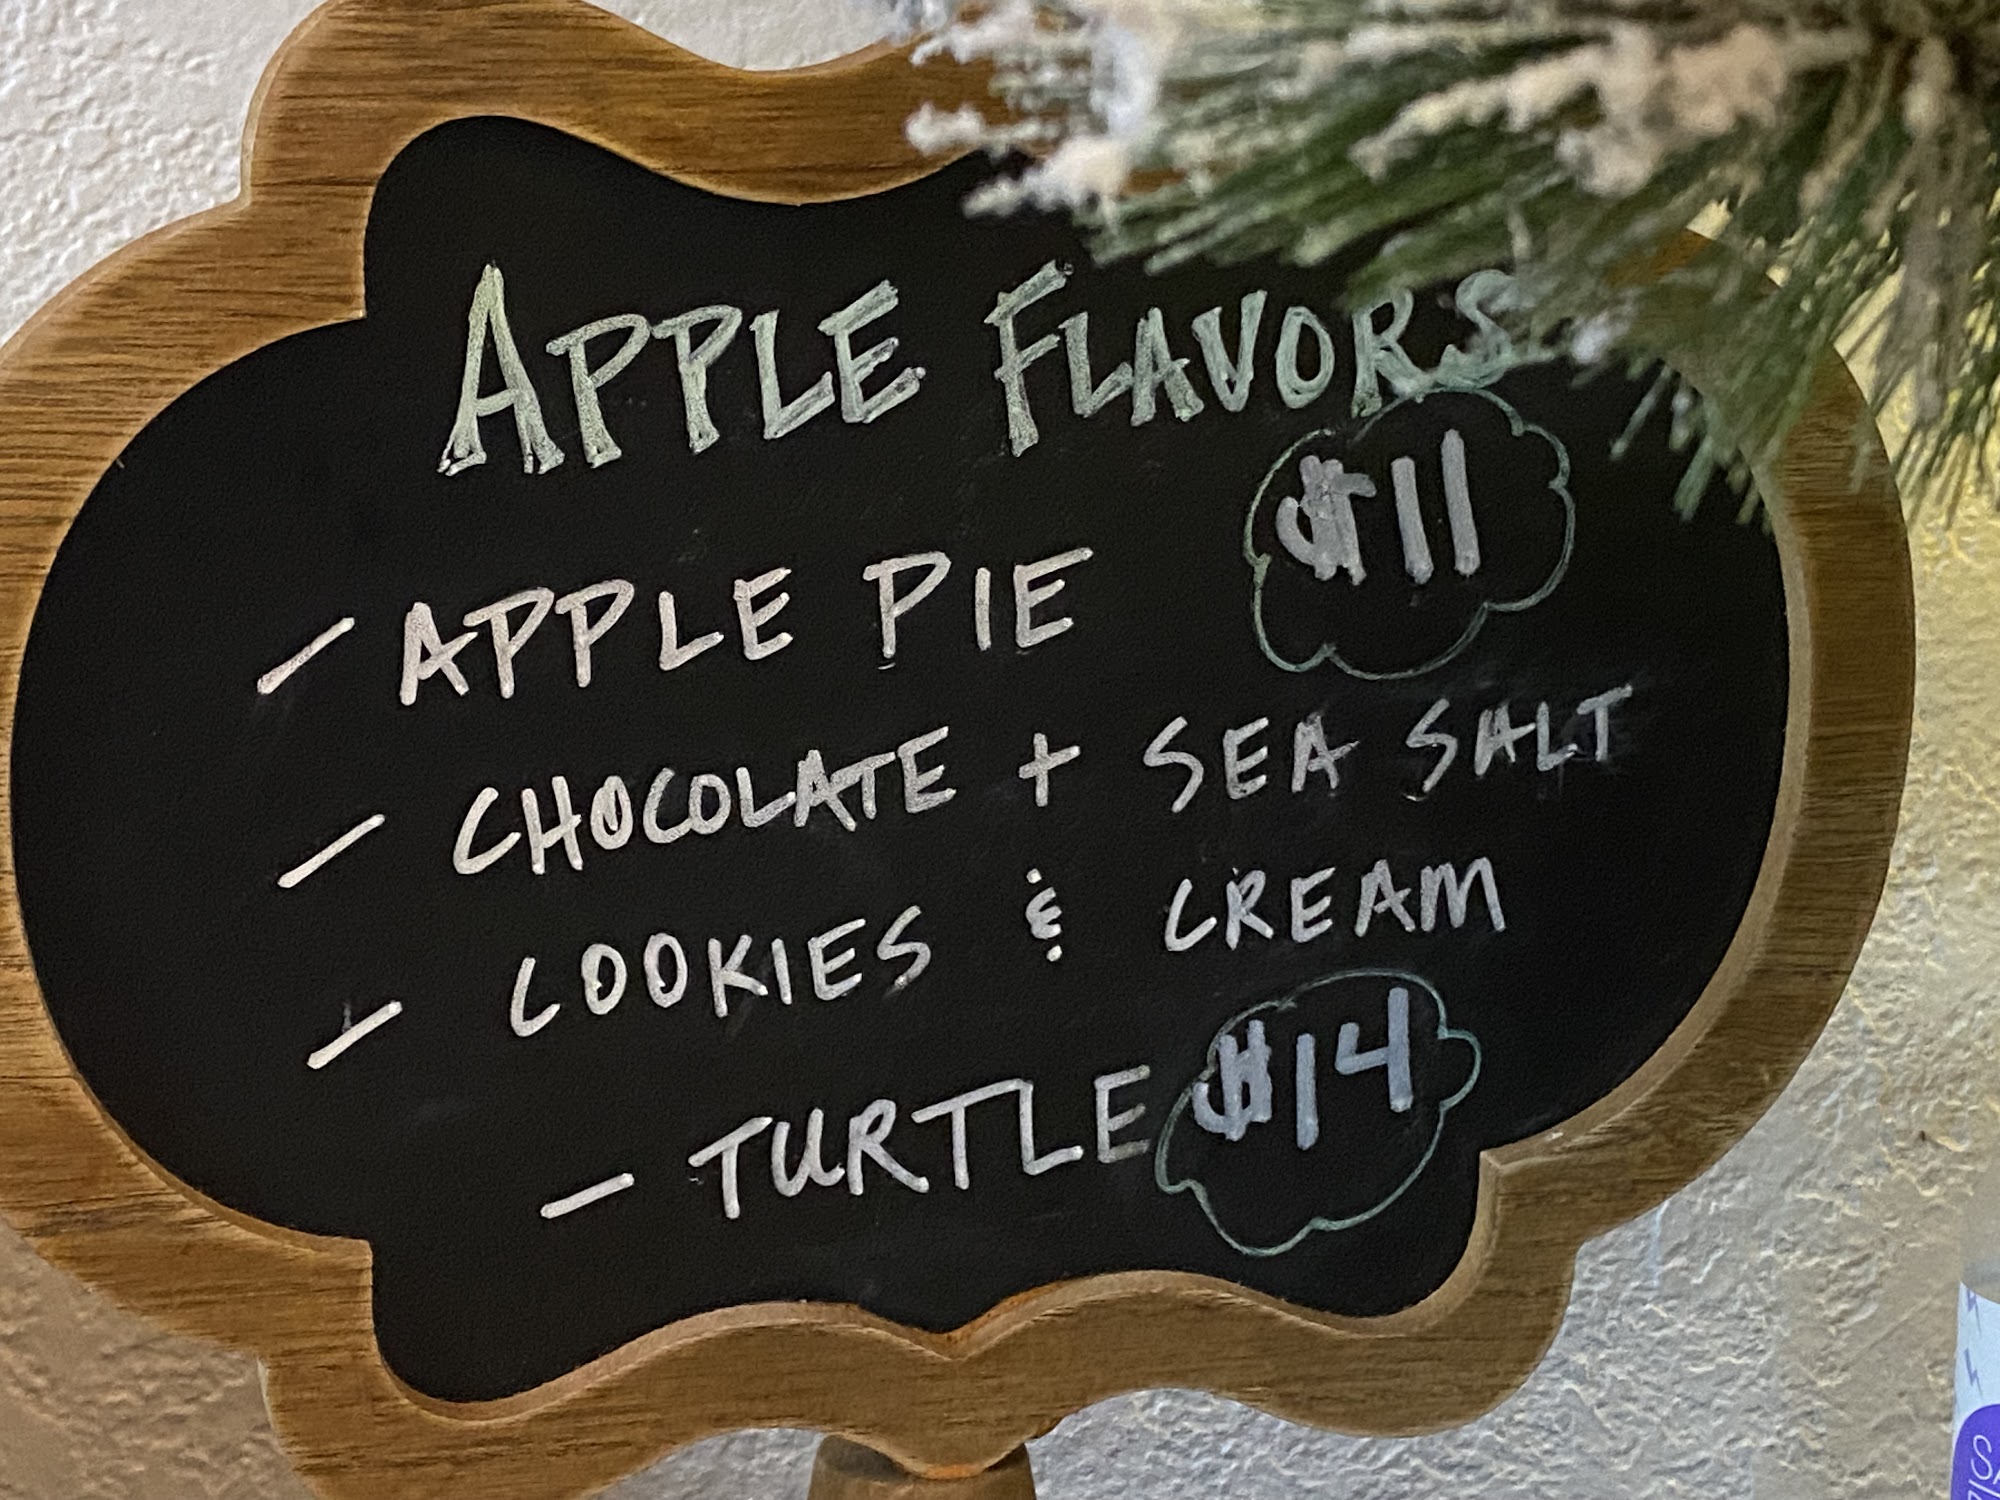 APPLE FLAVORS
$11
- APPLE PIE
- CHOCOLATE + SEA SALT
- COOKIES & CREAM
- TURTLE $14